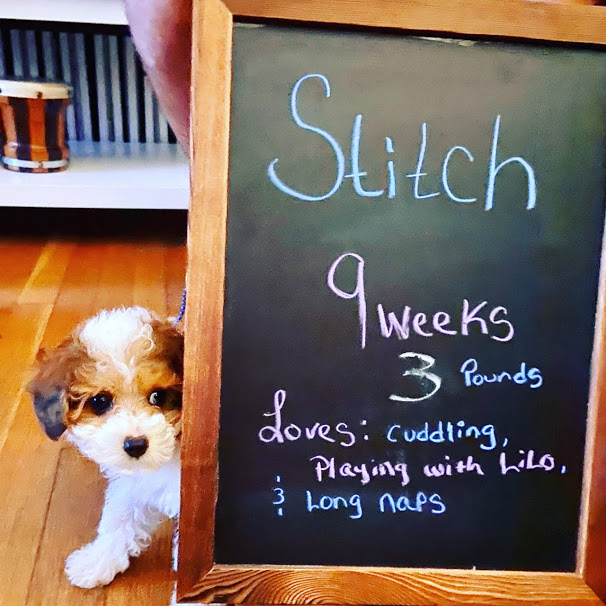 Stitch
9 weeks
3 Pounds
Loves: cuddling,
Playing with LiLo,
& Long naps